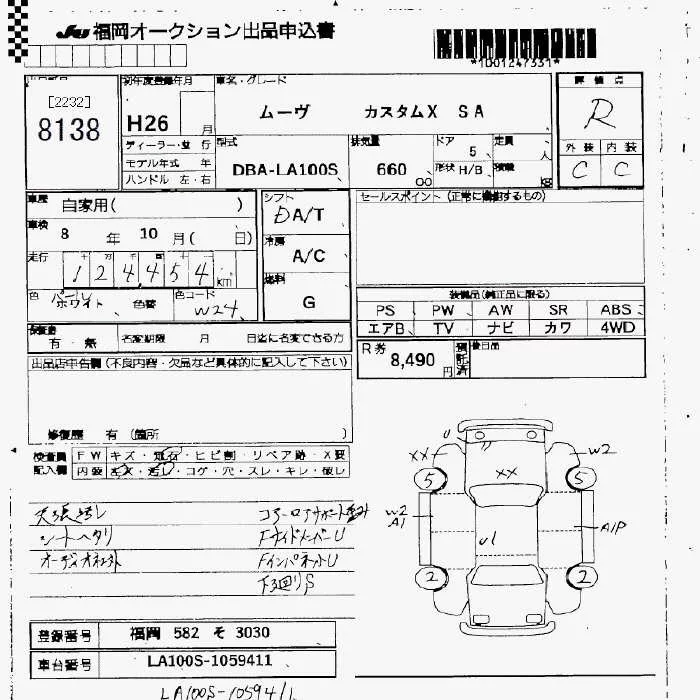 JU 福岡オークション出品申込書
*1001247331*
[2232]
8138
初年度登録年月
H26 月
車名・グレード
ムーヴ カスタムX SA
評価点
R
外装 内装
C C
ディーラー・並行
モデル年式 年
ハンドル 左・右
型式
DBA-LA100S
排気量
660 cc
ドア
5
形状 H/B
定員
人
積載
kg
車歴
自家用( )
車検
8 年 10 月( 日)
走行
124,454 km
色 パールホワイト 色替
色コード
W24
シフト
DA/T
冷房
A/C
燃料
G
セールスポイント (正常に機能するもの)
装備品(純正品に限る)
PS PW AW SR ABS
エアB TV ナビ カワ 4WD
保証書
有・無
名変期限 月 日迄に名変できる方
R券
8,490 円
預託済
後日品
出品店申告欄 (不良内容・欠品など具体的に記入して下さい)
修復歴 有 (箇所 )
検査員記入欄
FW キズ・飛石・ヒビ割・リペア跡・X要
内装 キズ・汚し・コゲ・穴・スレ・キレ・破レ
天張汚レ
シートヘタリ
コアーロアサポート歪み
FサイドメンバーU
FインパネットU
下廻りS
U
XX
W2
5
5
XX
W2
A1
U1
A1P
2
2
登録番号 福岡 582 そ 3030
車台番号 LA100S-1059411
LA100S-1059411